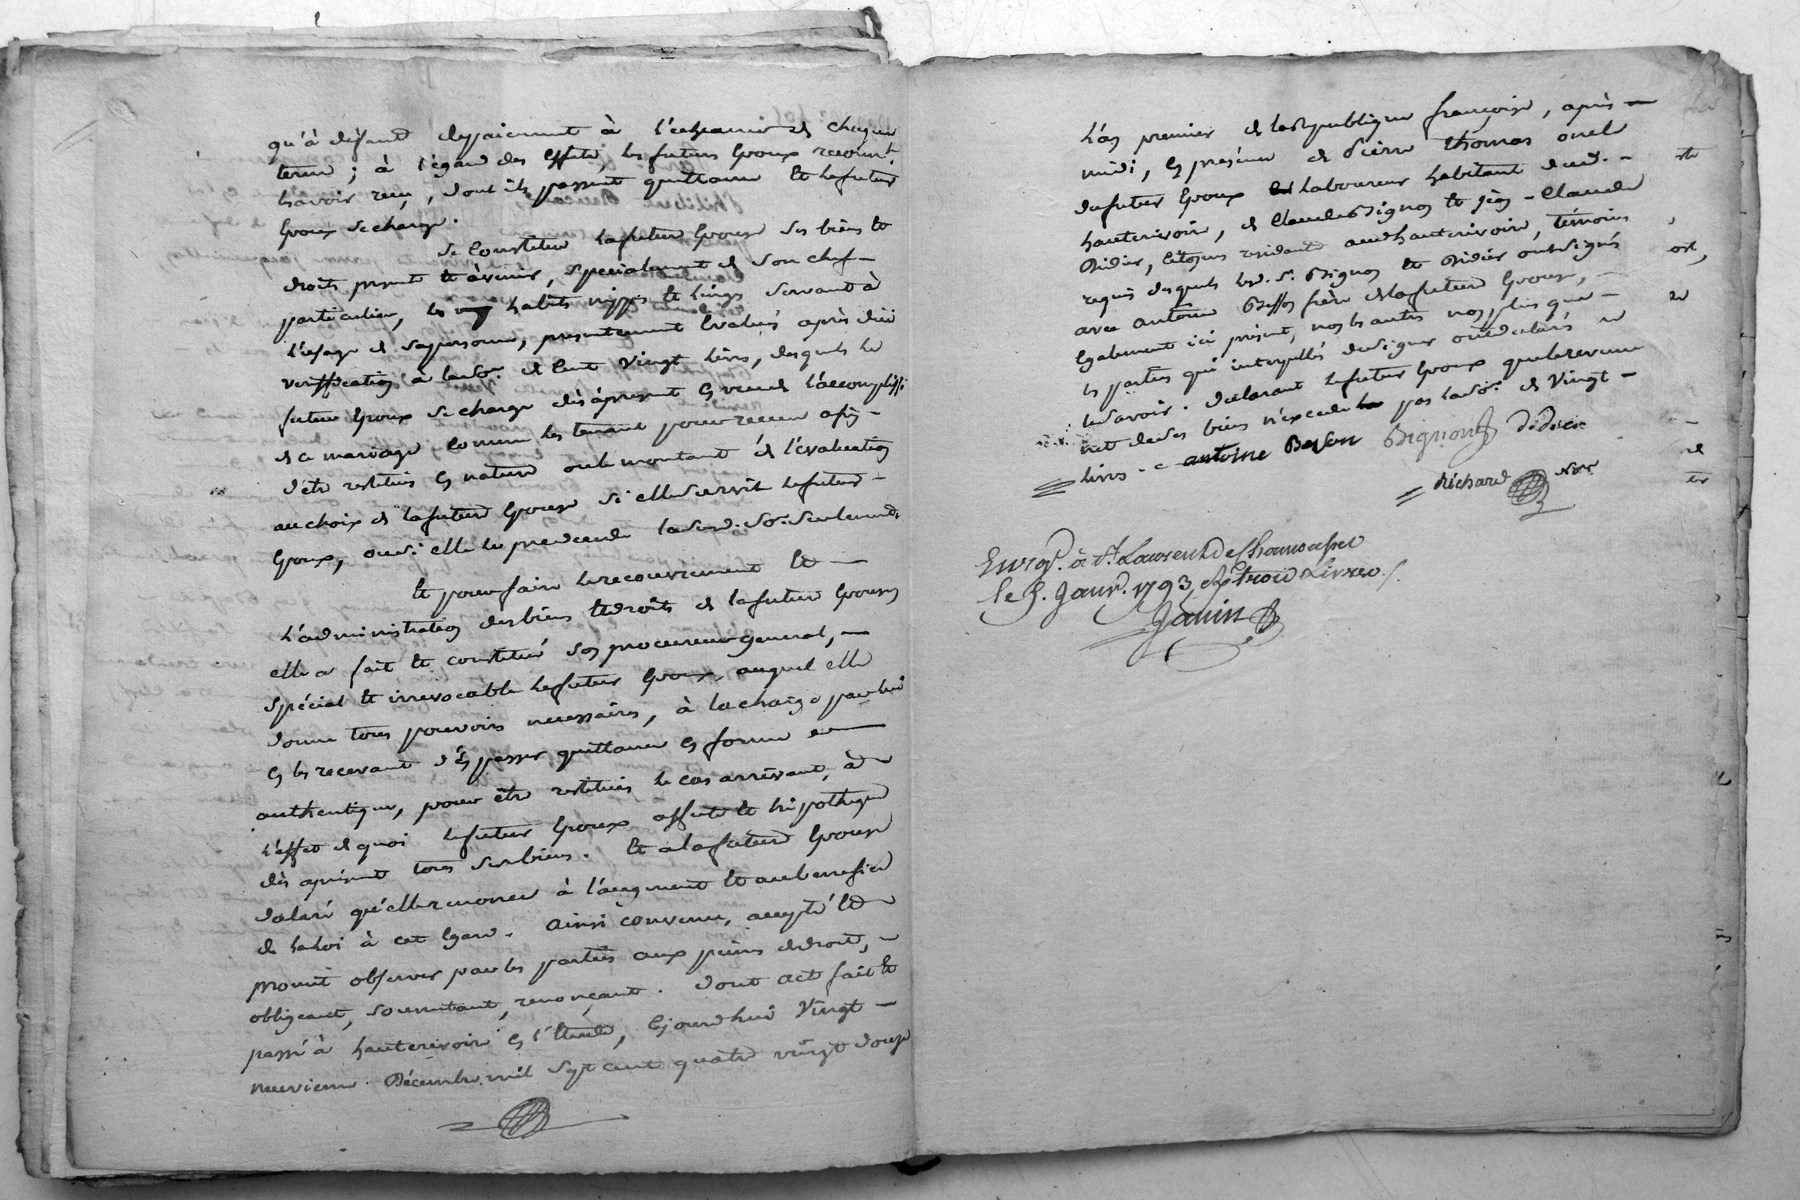 qu'à défaut depaiement à l'echeance de chaque
terme; à l'égard des effets, les futurs Epoux reconn.t
l'avoir reçu, dont ils passent quittance et le futur
Epoux se charge.
Se constitue la future Epouse ses biens et
droits present et àvenir, specialement de son chef
particulier, les habits nippes et linges servant à
l'usage de sa personne, presentement Evalués après due
verification à la so.e de cent vingt livres, desquels le
futur Epoux se charge dès àpresent en vue de l'accomplisst
de ce mariage comme les tenant pour reçu afin
d'être restitués en nature ou le montant de l'évaluation
au choix de la future Epouse si elle survit le futur
Epoux, ou si elle les precede lad. so.e seulement
Et pour faire le recouvrement et
l'administration des biens et droits de la future Epouse
elle a fait et constitué son procureur general,
spécial et irrevocable le futur Epoux, auquel elle
donne tous pouvoirs necessaires, à la charge par lui
en les recevant d'en passer quittance en forme
authentique, pour être restitués le cas arrivant, à
l'effet de quoi le futur Epoux affecte et hipotheque
dès apresent tous ses biens. Et a la future Epouse
declaré qu'elle renonce à l'augment et au benefice
de la loi à cet egard. Ainsi convenu, accepté et
promit observer par les parties aux peines de droit,
obligeant, soumettant, renonçant. Dont acte fait et
passé à hauterivoire en l'Etude, cejourd'hui vingt
neuvieme Décembre mil sept cent quatre vingt douze
L'an premier de la Republique françoise, après
midi, en presence de Pierre thomas oncle
du futur Epoux laboureur habitant aud.
hauterivoire, de Claude Bignon et jean Claude
Didier, citoyens residants aud hauterivoire, témoins
requis desquels lesd. Srs Bignon et Didier ont signés
avec antoine Besson frère de la future Epouse,
Egalement ici présent, non les autres non plus que
les parties qui interpellés de signer ont declarés ne
le savoir. Declarant le futur Epoux que le revenu
net de ses biens n'excede pas la so.e de vingt
livres.
antoine Beson Bignon Didier
Richard No.re
Enreg.é à St Laurent de Chamousset
le 5. Janv.r 1793, Rç trois Livres
Janin